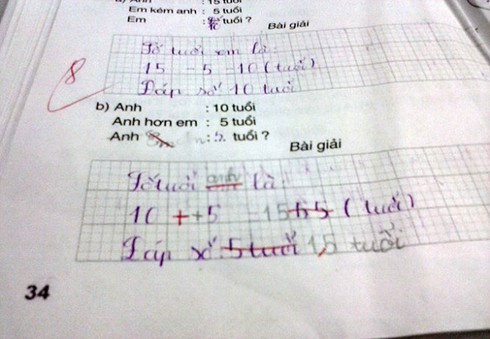 Anh : 15 tuổi
Em kém anh : 5 tuổi
Em : tuổi ?
Bài giải
Số tuổi em là:
15 - 5 = 10 (tuổi)
Đáp số 10 tuổi
8
b) Anh : 10 tuổi
Anh hơn em : 5 tuổi
Anh : tuổi ?
Bài giải
Số tuổi anh là:
10 + +5 = 15 (tuổi)
Đáp số 5 tuổi 15 tuổi
34